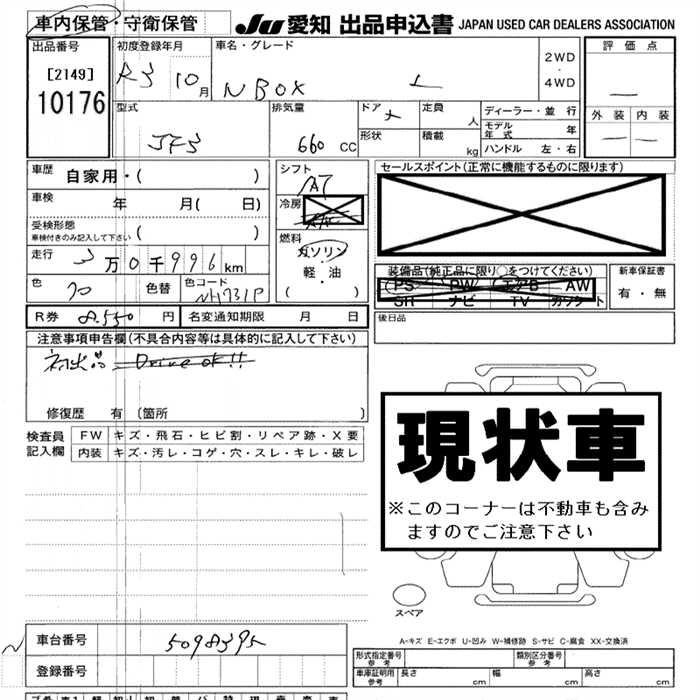 車内保管・守衛保管
JU 愛知 出品申込書 JAPAN USED CAR DEALERS ASSOCIATION
出品番号 初度登録年月 車名・グレード 評価点
[2149] R3 10月 N BOX L 2WD・4WD
10176
外装 内装
型式 排気量 ドア 定員 人 ディーラー・並行
JF3 660 CC 形状 積載 kg モデル年式 年
ハンドル 左・右
車歴 自家用・( ) シフト AT セールスポイント(正常に機能するものに限ります)
車検 年 月( 日) 冷房
受検形態 車検付きのみ記入して下さい ( ) 燃料 ガソリン
走行 3万0千996km 軽・油 装備品(純正品に限り○をつけてください) 新車保証書
色 色替 色コード ( ) PS PW エアB AW 有・無
NH731P SH ナビ TV カセット
R券 8,550円 名変通知期限 月 日 後日品
注意事項申告欄(不具合内容等は具体的に記入して下さい)
初出品 Drive ok!!
修復歴 有 〔箇所 〕
検査員 FW キズ・飛石・ヒビ割・リペア跡・X要
記入欄 内装 キズ・汚レ・コゲ・穴・スレ・キレ・破レ
現状車
※このコーナーは不動車も含み
ますのでご注意下さい
スペア
A-キズ E-エクボ U-凹み W-補修跡 S-サビ C-腐食 XX-交換済
車台番号 5098395
登録番号
形式指定番号 参考 類別区分番号 参考
車庫証明用 参考 長さ cm 幅 cm 高さ cm